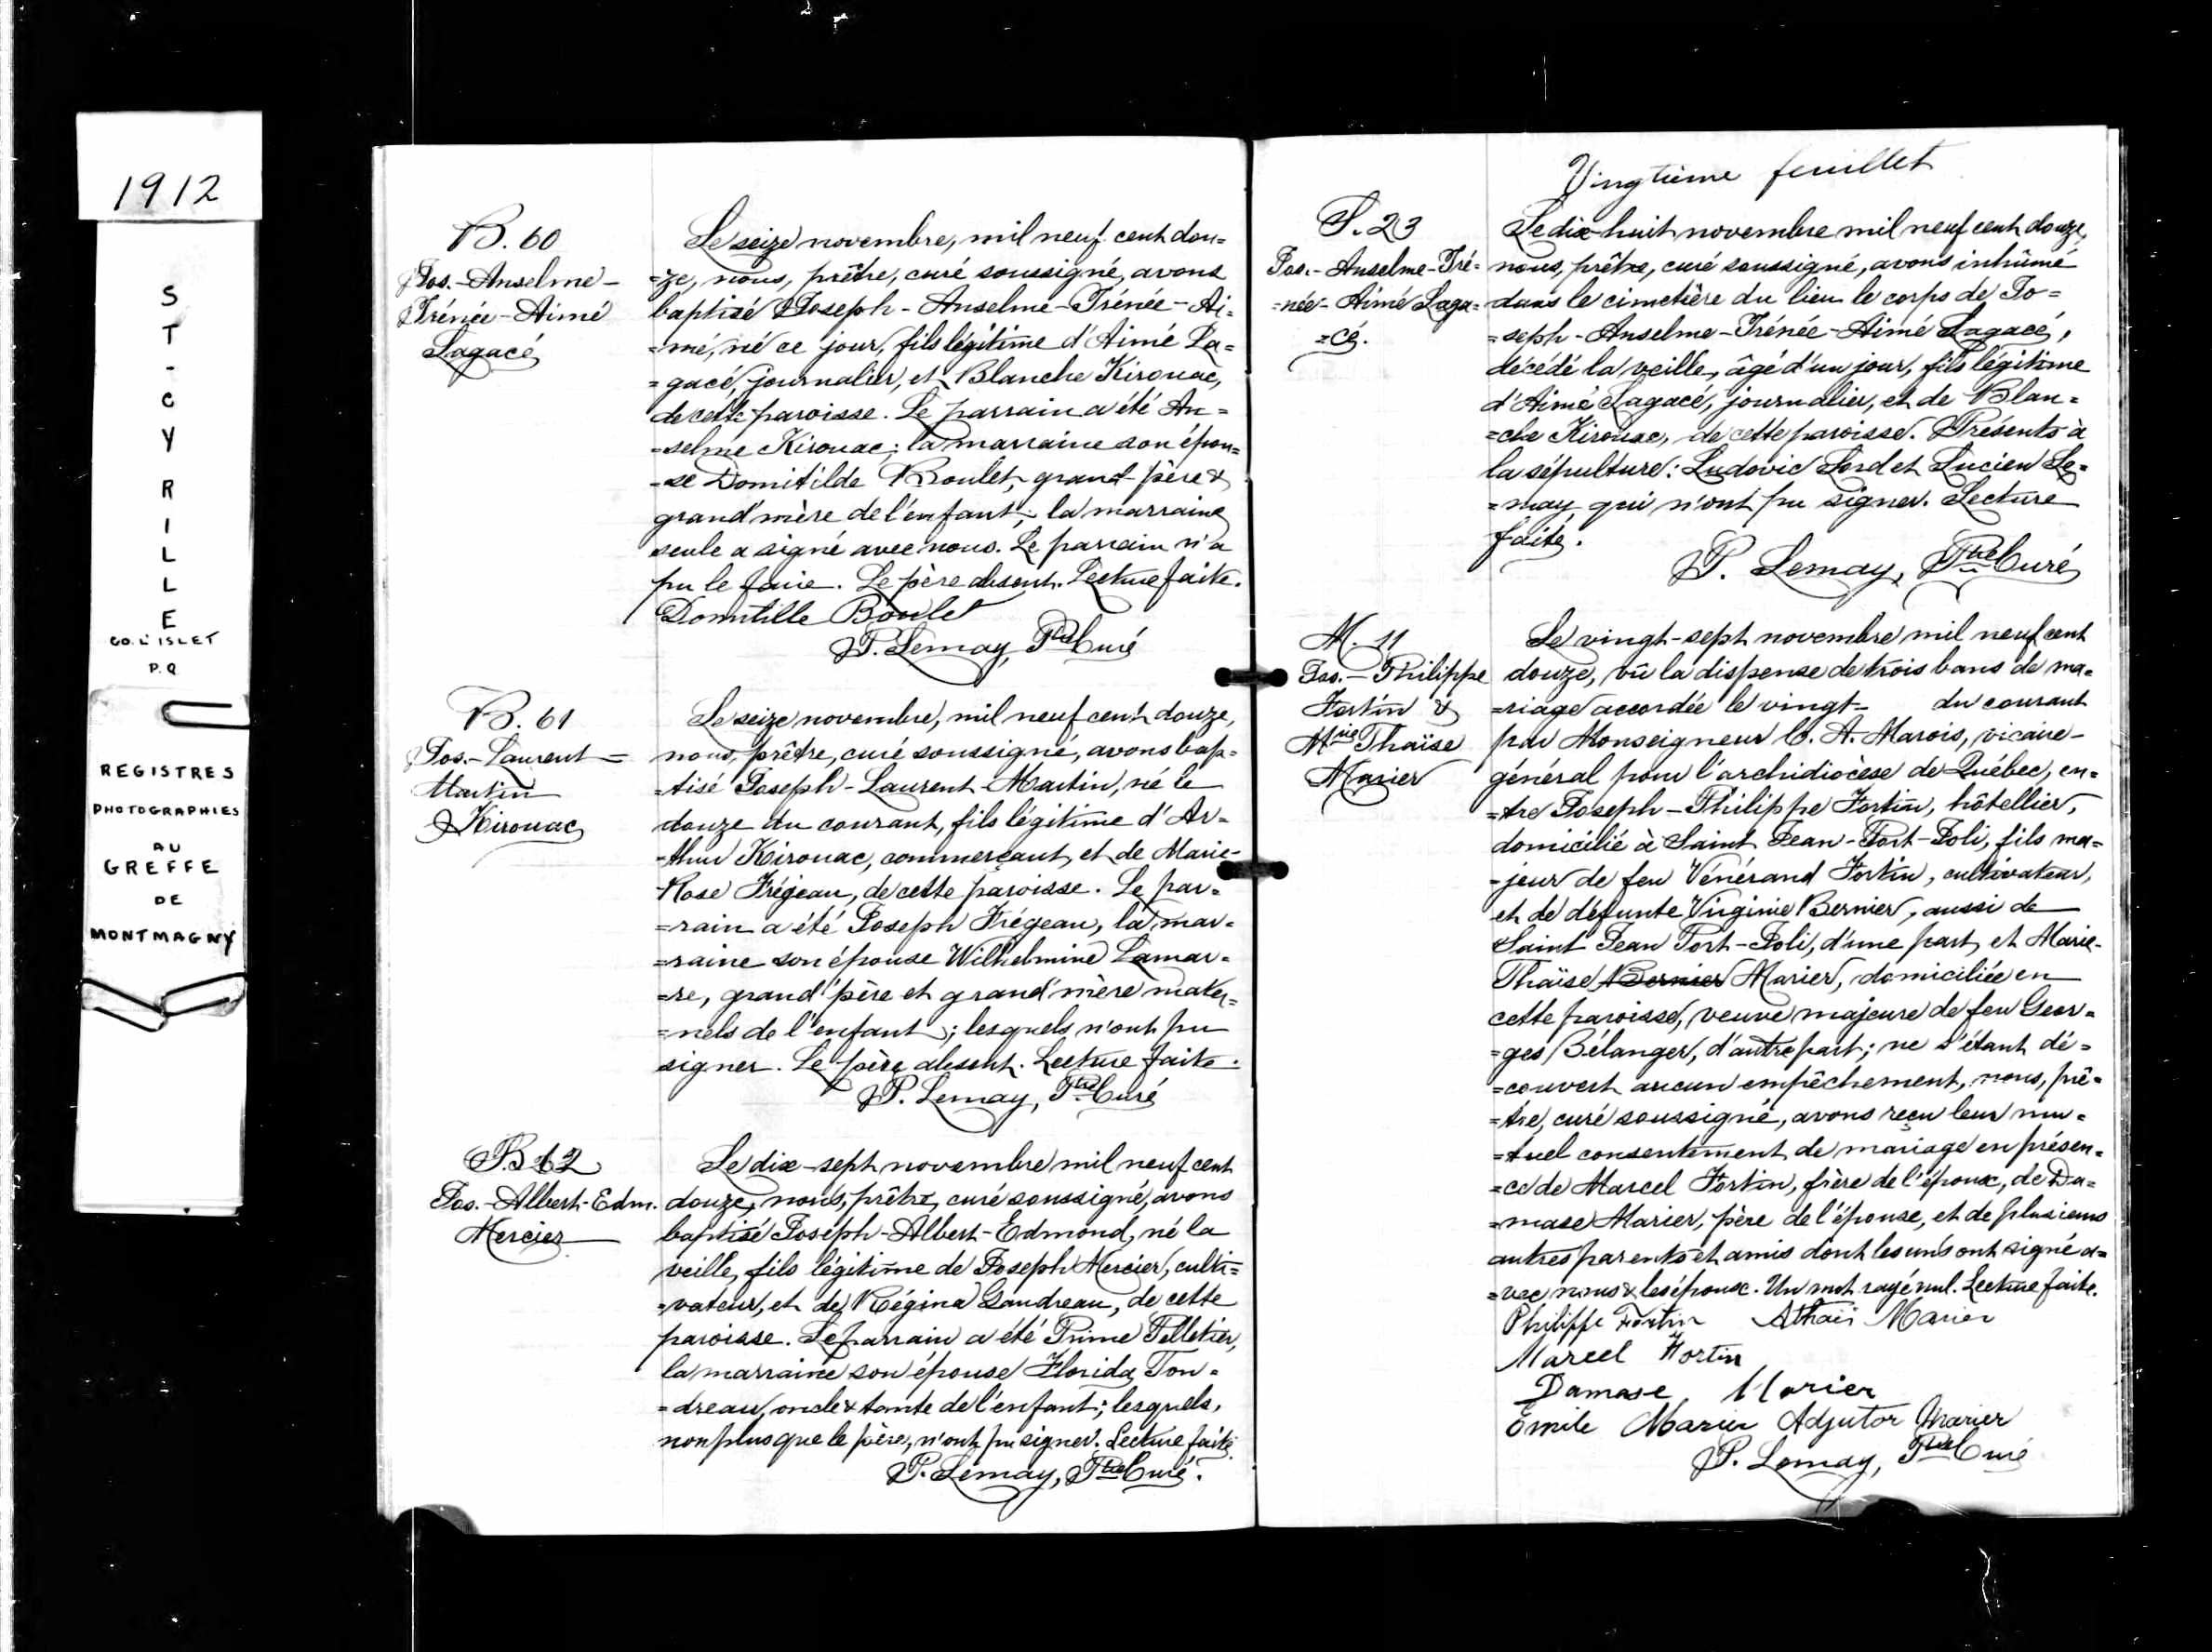 1912
ST-CYRILLE
CO. L'ISLET
P.Q
REGISTRES
PHOTOGRAPHIES
AU
GREFFE
DE
MONTMAGNY
B. 60
Jos.-Anselme-
Irénée-Aimé
Lagacé
Le seize novembre, mil neuf cent dou=
=ze, nous, prêtre, curé soussigné, avons
baptisé Joseph-Anselme-Irénée-Ai=
=mé, né ce jour, fils légitime d'Aimé La=
=gacé, journalier, et Blanche Kirouac,
de cette paroisse. Le parrain a été An=
=selme Kirouac; la marraine son épou=
=se Domitilde Boulet, grand-père &
grand'mère de l'enfant; la marraine
seule a signé avec nous. Le parrain n'a
pu le faire. Le père absent. Lecture faite.
Domitille Boulet
P. Lemay, Ptre Curé
B. 61
Jos.-Laurent=
Martin
Kirouac
Le seize novembre, mil neuf cent douze,
nous, prêtre, curé soussigné, avons bap=
=tisé Joseph-Laurent-Martin, né le
douze du courant, fils légitime d'Ar=
=thur Kirouac, commerçant, et de Marie-
-Rose Frégeau, de cette paroisse. Le par=
=rain a été Joseph Frégeau, la mar=
=raine son épouse Wilhelmine Lamar=
=re, grand'père et grand'mère mater=
=nels de l'enfant; lesquels n'ont pu
signer. Le père absent. Lecture faite.
P. Lemay, Ptre Curé
B 62
Jos.-Albert-Edm.
Mercier
Le dix-sept novembre mil neuf cent
douze, nous, prêtre, curé soussigné, avons
baptisé Joseph-Albert-Edmond, né la
veille, fils légitime de Joseph Mercier, culti=
=vateur, et de Régina Gaudreau, de cette
paroisse. Le parrain a été Prime Pelletier,
la marraine son épouse Florida Ton=
=dreau, oncle & tante de l'enfant; lesquels,
non plus que le père, n'ont pu signer. Lecture faite.
P. Lemay, Ptre Curé.
Vingtième feuillet
S. 23
Jos.-Anselme-Iré=
=née-Aimé Laga=
=cé.
Le dix-huit novembre mil neuf cent douze,
nous, prêtre, curé soussigné, avons inhûmé
dans le cimetière du lieu le corps de Jo=
=seph-Anselme-Irénée-Aimé Lagacé,
décédé la veille, âgé d'un jour, fils légitime
d'Aimé Lagacé, journalier, et de Blan=
=che Kirouac, de cette paroisse. Présents à
la sépulture: Ludovic Lord et Lucien Le=
=may qui n'ont pu signer. Lecture
faite.
P. Lemay, Ptre Curé
M. 11
Jos.-Philippe
Fortin &
Mrie Thaïse
Marier
Le vingt-sept novembre mil neuf cent
douze, vû la dispense de trois bans de ma=
=riage accordée le vingt- du courant
par Monseigneur C. A. Marois, vicaire-
général pour l'archidiocèse de Québec, en=
=tre Joseph-Philippe Fortin, hôtellier,
domicilié à Saint Jean-Port-Joli, fils ma=
=jeur de feu Vénérand Fortin, cultivateur,
et de défunte Virginie Bernier, aussi de
Saint Jean Port-Joli, d'une part, et Marie-
Thaïse Bernier Marier, domiciliée en
cette paroisse, veuve majeure de feu Geor=
=ges Bélanger, d'autre part; ne s'étant dé=
=couvert aucun empêchement, nous, prê=
=tre, curé soussigné, avons reçu leur mu=
=tuel consentement de mariage en présen=
=ce de Marcel Fortin, frère de l'époux, de Da=
=mase Marier, père de l'épouse, et de plusieurs
autres parents et amis dont les uns ont signé a=
=vec nous & les époux. Un mot rayé nul. Lecture faite.
Philippe Fortin Athaïs Marier
Marcel Fortin
Damase Marier
Emile Marier Adjutor Marier
P. Lemay, Ptre Curé